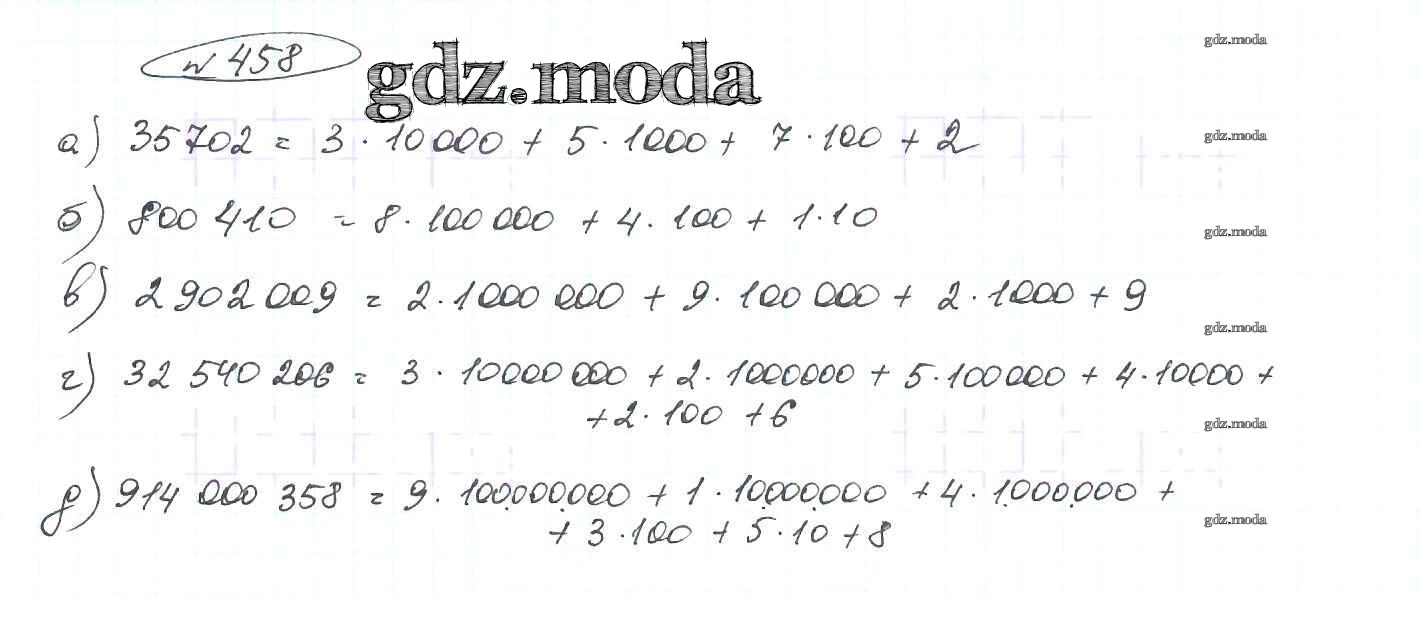 № 458
gdz.moda
gdz.moda
а) 35702 = 3 · 10 000 + 5 · 1000 + 7 · 100 + 2
gdz.moda
б) 800 410 = 8 · 100 000 + 4 · 100 + 1 · 10
gdz.moda
в) 2 902 009 = 2 · 1000 000 + 9 · 100 000 + 2 · 1000 + 9
gdz.moda
г) 32 540 206 = 3 · 10000 000 + 2 · 1000000 + 5 · 100000 + 4 · 10000 +
+ 2 · 100 + 6
gdz.moda
д) 914 000 358 = 9 · 100000000 + 1 · 10000000 + 4 · 1000000 +
+ 3 · 100 + 5 · 10 + 8
gdz.moda